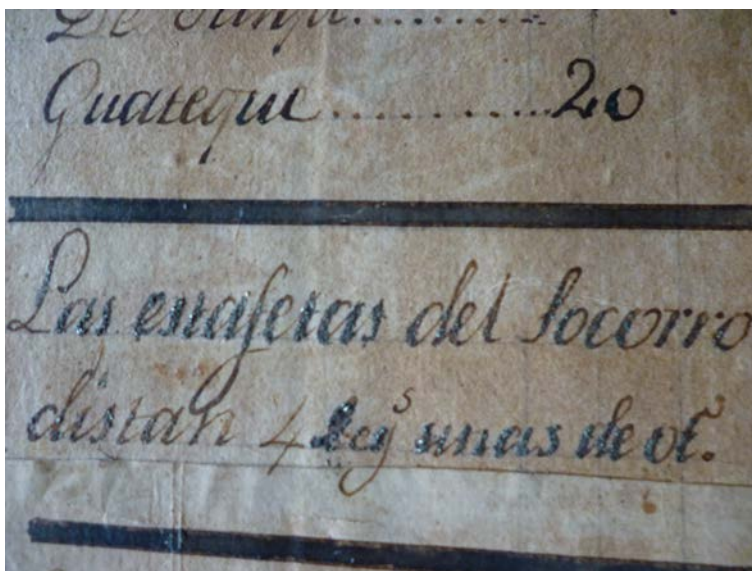 De Tunja...........
Guateque...........20
Las estafetas del Socorro
distan 4 leg.s unas de ot.